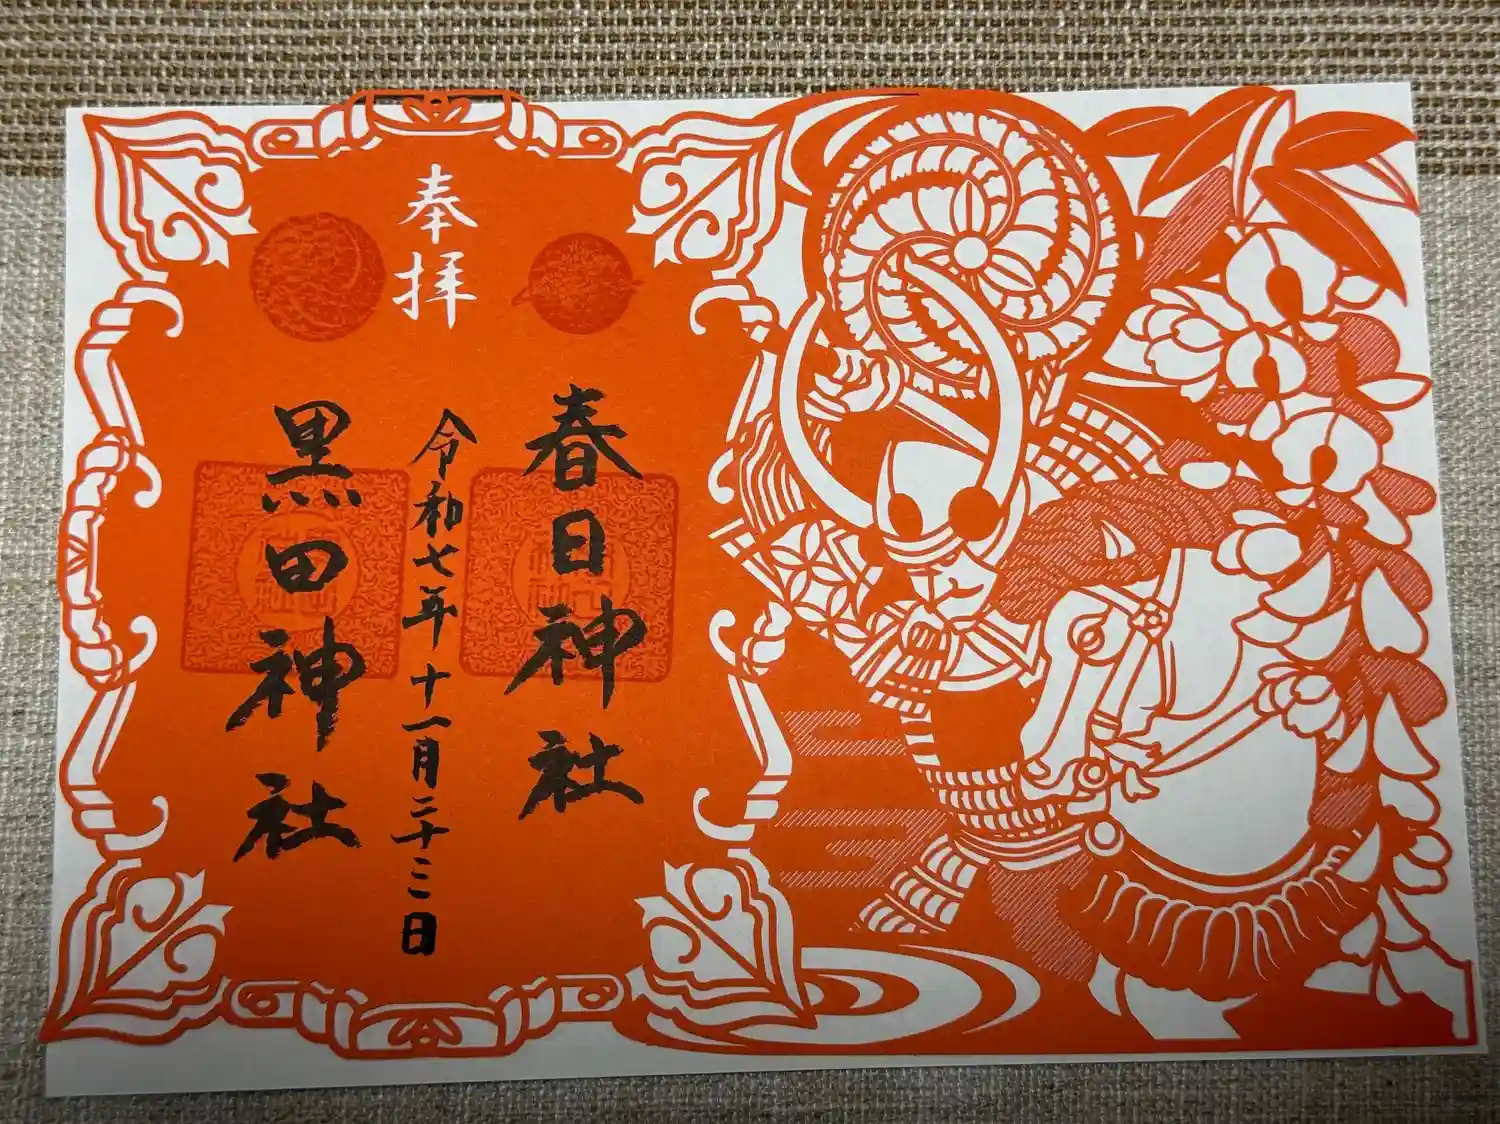 奉拝
春日神社
令和七年十一月二十三日
黒田神社